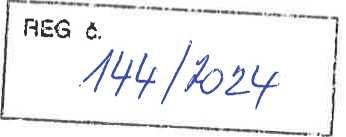 REG č.
144/2024